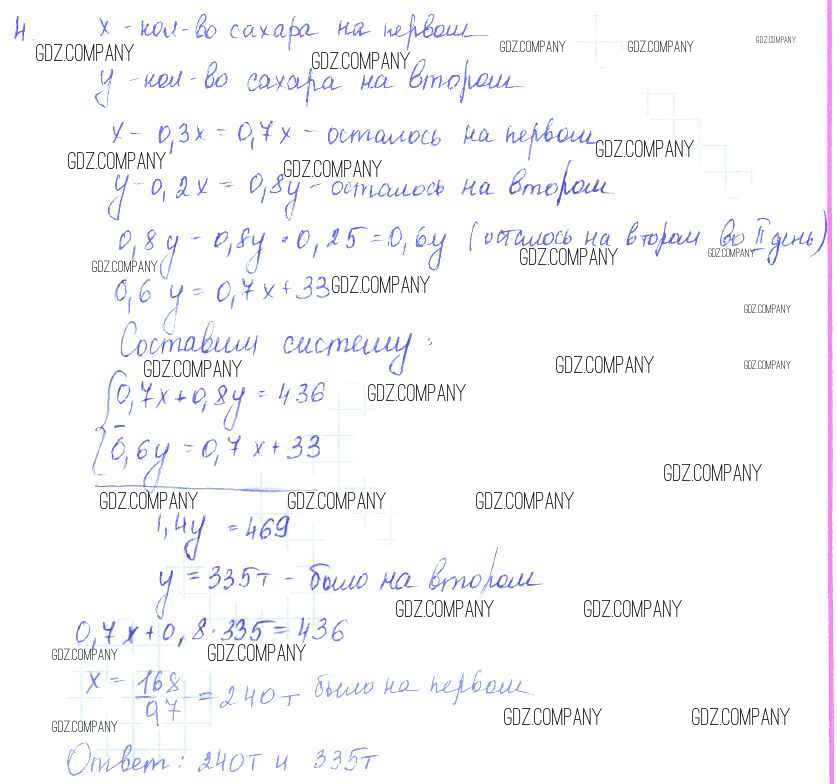 4. x - кол-во сахара на первом
GDZ.COMPANY GDZ.COMPANY GDZ.COMPANY GDZ.COMPANY GDZ.COMPANY
y - кол-во сахара на втором
x - 0,3x = 0,7x - осталось на первом
GDZ.COMPANY GDZ.COMPANY GDZ.COMPANY
y - 0,2x = 0,8y - осталось на втором
0,8y - 0,8y · 0,25 = 0,6y (осталось на втором во II день)
GDZ.COMPANY GDZ.COMPANY GDZ.COMPANY
0,6y = 0,7x + 33
GDZ.COMPANY
GDZ.COMPANY
Составим систему:
GDZ.COMPANY GDZ.COMPANY GDZ.COMPANY
0,7x + 0,8y = 436
GDZ.COMPANY
0,6y = 0,7x + 33
GDZ.COMPANY
GDZ.COMPANY GDZ.COMPANY GDZ.COMPANY
1,4y = 469
y = 335т - было на втором
GDZ.COMPANY GDZ.COMPANY
0,7x + 0,8 · 335 = 436
GDZ.COMPANY GDZ.COMPANY
x = 168/0,7 = 240т было на первом
GDZ.COMPANY GDZ.COMPANY GDZ.COMPANY
Ответ: 240т и 335т